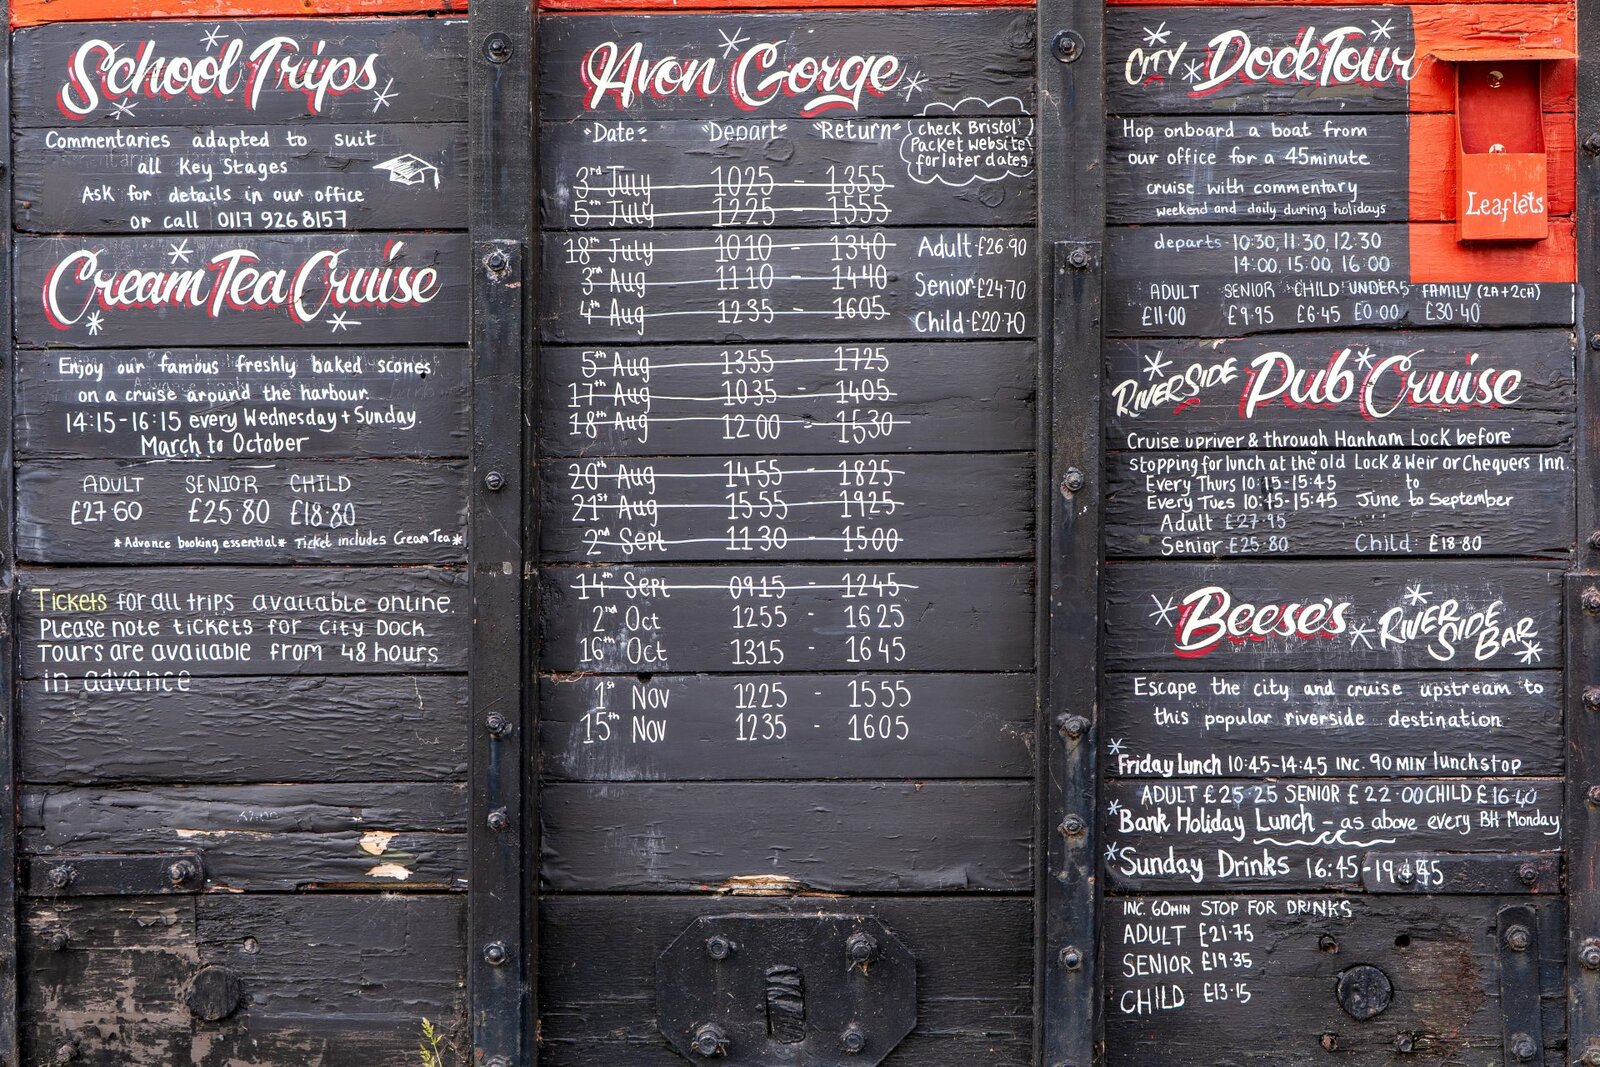 School Trips
Commentaries adapted to suit
all Key Stages
Ask for details in our office
or call 0117 926 8157
Cream Tea Cruise
Enjoy our famous freshly baked scones
on a cruise around the harbour.
14:15-16:15 every Wednesday + Sunday.
March to October
ADULT SENIOR CHILD
£27.60 £25.80 £18.80
*Advance booking essential* Ticket includes Cream Tea*
Tickets for all trips available online.
Please note tickets for City Dock
Tours are available from 48 hours
in advance
Avon Gorge
"Date" "Depart" "Return"
check Bristol
Packet website
for later dates
3rd July 1025 - 1355
5th July 1225 - 1555
18th July 1010 - 1340
3rd Aug 1110 - 1440
4th Aug 1235 - 1605
Adult £26.90
Senior £24.70
Child £20.70
5th Aug 1355 - 1725
17th Aug 1035 - 1405
18th Aug 1200 - 1530
20th Aug 1455 - 1825
21st Aug 1555 - 1925
2nd Sept 1130 - 1500
14th Sept 0915 - 1245
2nd Oct 1255 - 1625
16th Oct 1315 - 1645
1st Nov 1225 - 1555
15th Nov 1235 - 1605
City Dock Tour
Hop onboard a boat from
our office for a 45minute
cruise with commentary
weekend and daily during holidays
departs 10:30, 11:30, 12:30
14:00, 15:00, 16:00
ADULT SENIOR CHILD UNDER 5 FAMILY (2A+2CH)
£11.00 £9.95 £6.45 £0.00 £30.40
Leaflets
Riverside Pub Cruise
Cruise upriver & through Hanham Lock before
stopping for lunch at the old Lock & Weir or Chequers Inn.
Every Thurs 10:15-15:45 to
Every Tues 10:15-15:45 June to September
Adult £27.95
Senior £25.80 Child £18.80
Beese's Riverside Bar
Escape the city and cruise upstream to
this popular riverside destination
*Friday Lunch 10:45-14:45 INC. 90 MIN lunchstop
ADULT £25.25 SENIOR £22.00 CHILD £16.40
*Bank Holiday Lunch - as above every BH Monday
*Sunday Drinks 16:45-19:45
INC. 60MIN STOP FOR DRINKS
ADULT £21.75
SENIOR £19.35
CHILD £13.15